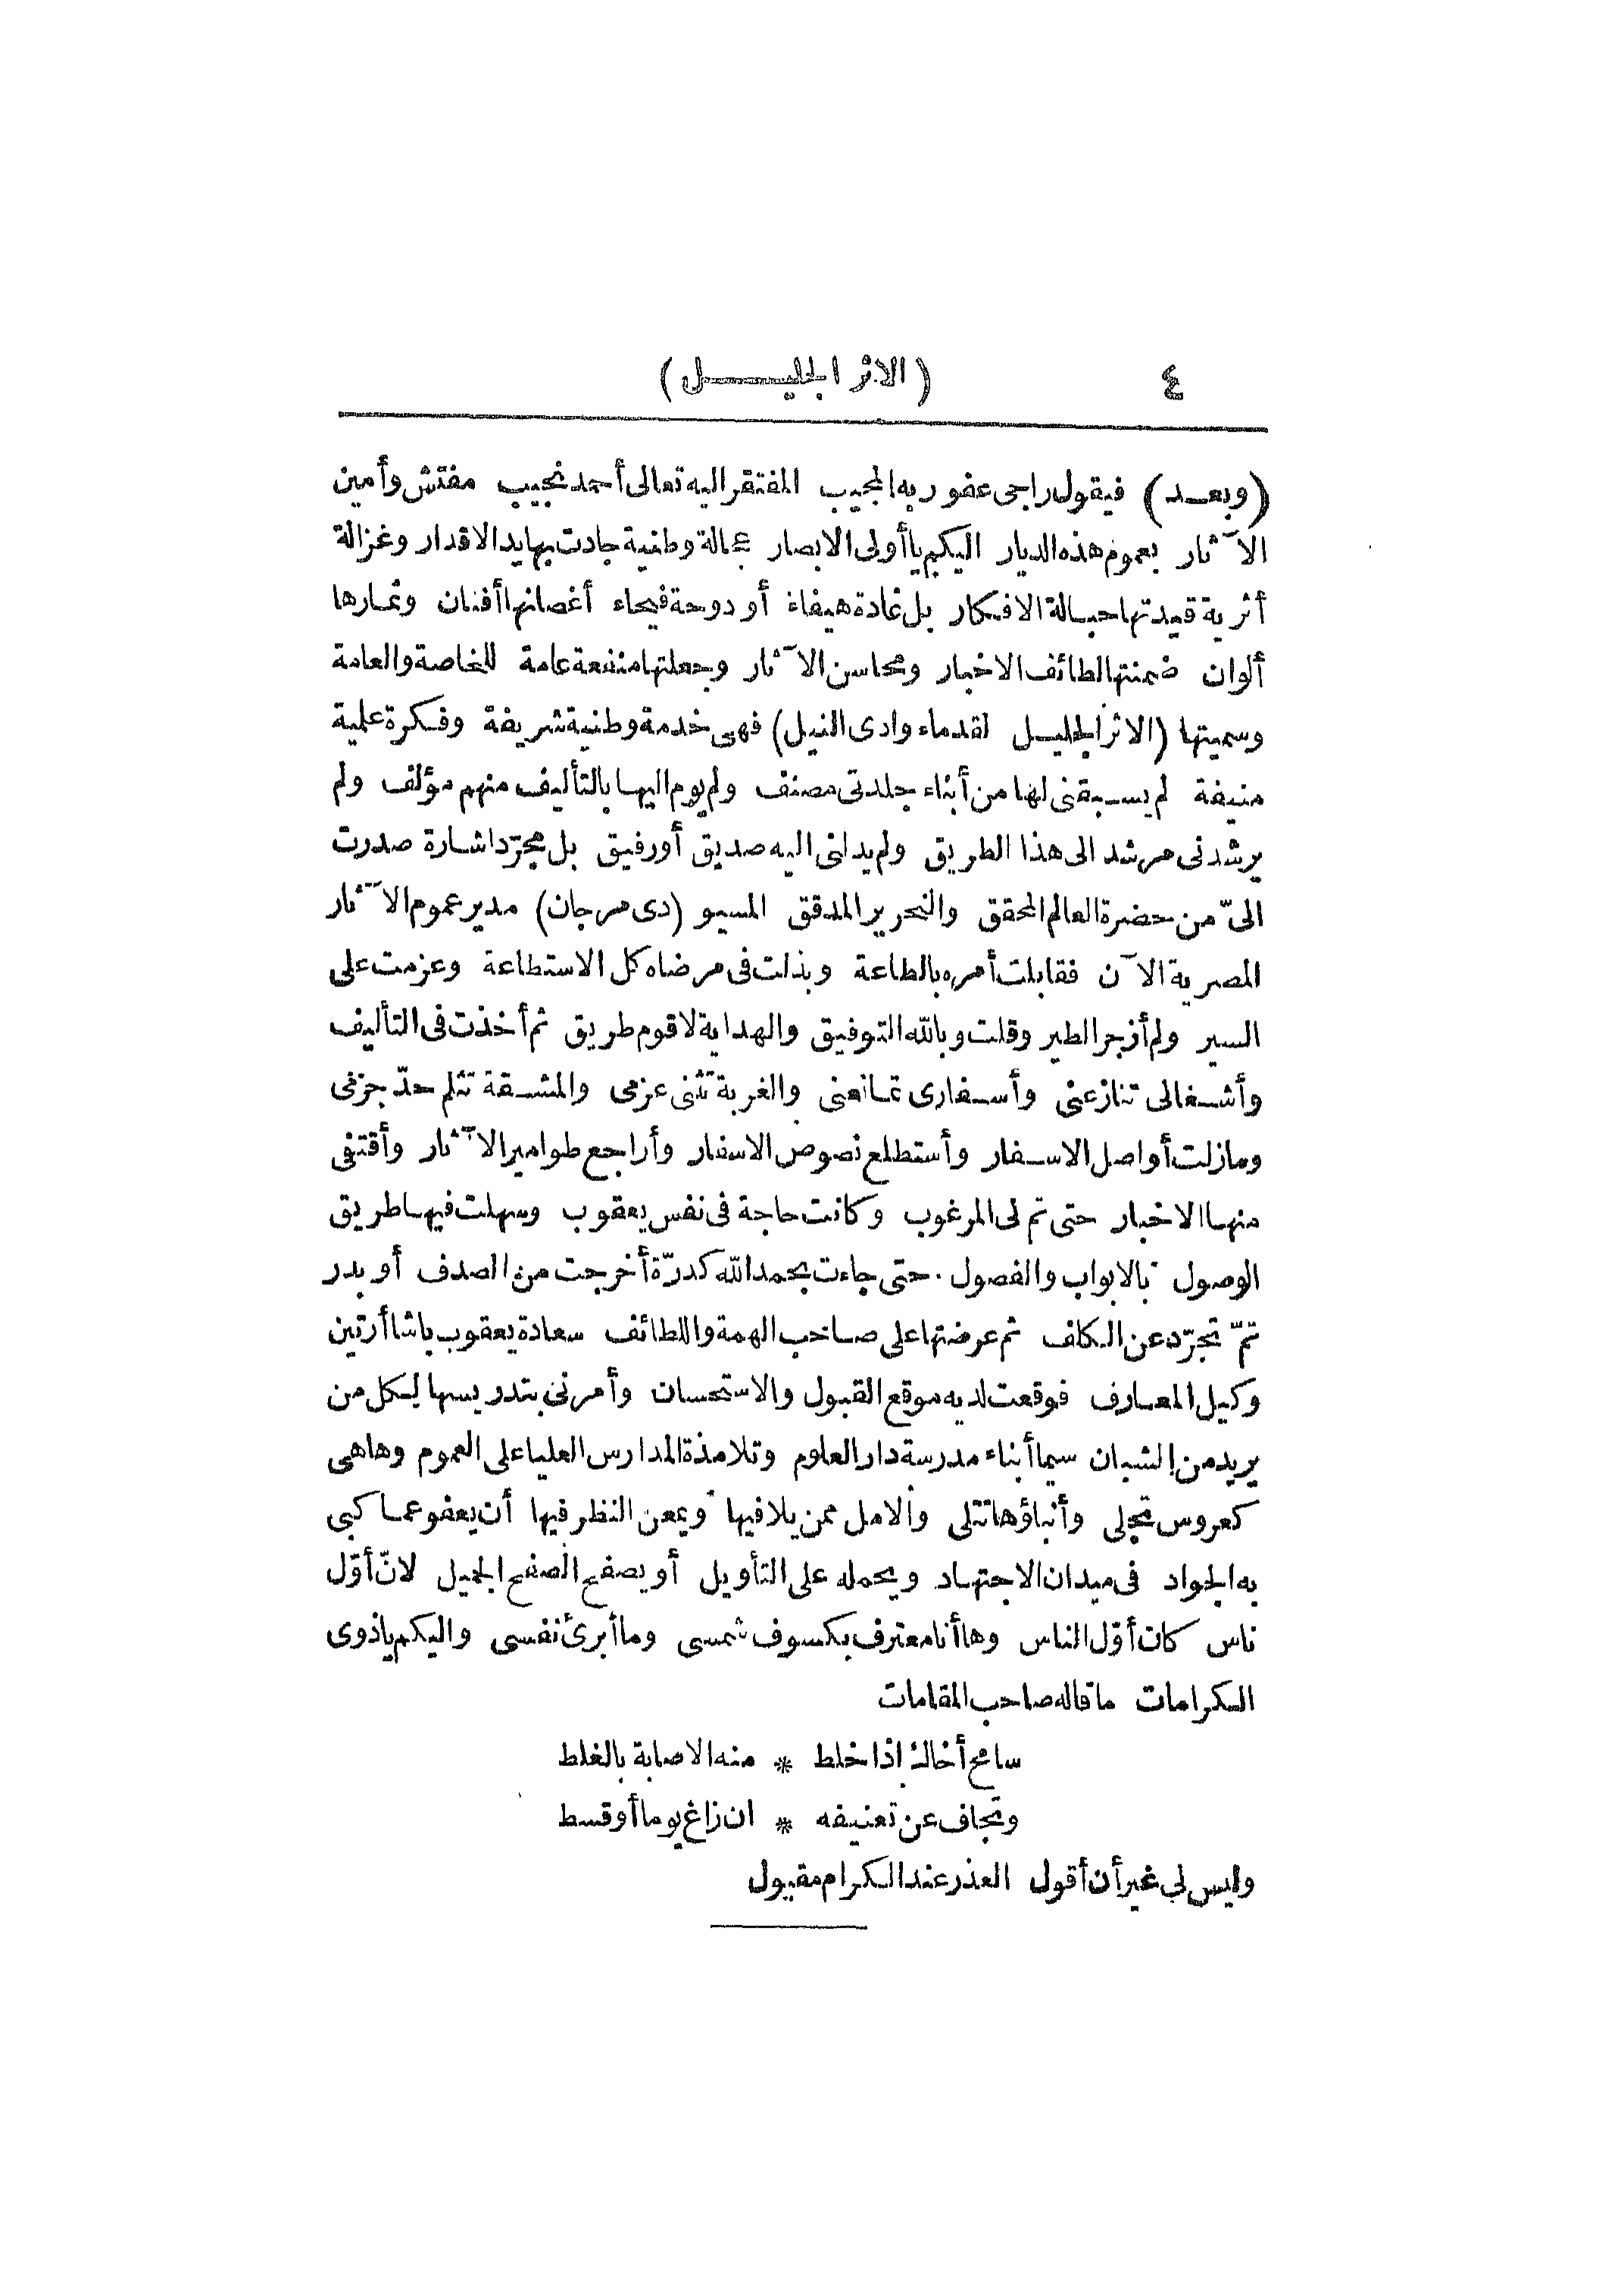 ٤ (الاثر الجليل)
(وبعد) فيقول راجى عفو ربه المجيب المفتقر اليه تعالى أحمد نجيب مفتش وأمين
الآثار بعموم هذه الديار اليكم يا أولى الابصار عجالة وطنية جادت بها يد الاقدار وغزالة
أثرية قيدتها حبالة الافكار بل غادة هيفاء أو دوحة فيحاء أغصانها أفنان وثمارها
ألوان ضمنتها لطائف الاخبار ومحاسن الآثار وجعلتها منفعة عامة للخاصة والعامة
وسميتها (الاثر الجليل لقدماء وادى النيل) فهى خدمة وطنية شريفة وفكرة علمية
منيفة لم يسبقنى لها من أبناء جلدتى مصنف ولم يوم اليها بالتأليف منهم مؤلف ولم
يرشدنى مرشد الى هذا الطريق ولم يدلنى اليه صديق أو رفيق بل مجرّد اشارة صدرت
الىّ من حضرة العالم المحقق والنحرير المدقق المسيو (دى مرجان) مدير عموم الآثار
المصرية الآن فقابلت أمره بالطاعة وبذلت فى مرضاه كل الاستطاعة وعزمت على
السير ولم أزجر الطير وقلت وبالله التوفيق والهداية لاقوم طريق ثم أخذت فى التأليف
وأشغالى تنازعنى وأسفارى تمانعنى والغربة تثنى عزمى والمشقة تثلم حدّ حزمى
ومازلت أواصل الاسفار وأستطلع نصوص الاسفار وأراجع طوامير الآثار وأقتفى
منها الاخبار حتى تم لى المرغوب وكانت حاجة فى نفس يعقوب وسهلت فيها طريق
الوصول بالابواب والفصول حتى جاءت بحمد الله كدرّة أخرجت من الصدف أو بدر
تمّ تجرّد عن الكلف ثم عرضتها على صاحب الهمة واللطائف سعادة يعقوب باشا أرتين
وكيل المعارف فوقعت لديه موقع القبول والاستحسان وأمرنى بتدريسها لكل من
يريد من الشبان سيما أبناء مدرسة دار العلوم وتلامذة المدارس العليا على العموم وهاهى
كعروس تجلى وأنباؤها تتلى والامل ممن يلافيها ويمعن النظر فيها أن يعفو عما كبى
به الجواد فى ميدان الاجتهاد ويحمله على التأويل أو يصفح الصفح الجميل لانّ أوّل
ناس كان أوّل الناس وها أنا معترف بكسوف شمسى وما أبرئ نفسى واليكم ياذوى
الكرامات ما قاله صاحب المقامات
سامح أخاك اذا خلط * منه الاصابة بالغلط
وتجاف عن تعنيفه * ان زاغ يوما أو قسط
وليس لى غير أن أقول العذر عند الكرام مقبول